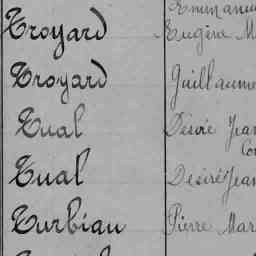 Emmanu
Troyard Eugène M
Troyard Guillaume
Tual Désiré Jean
Co
Tual Désiré Jean
Turbiau Pierre Mar